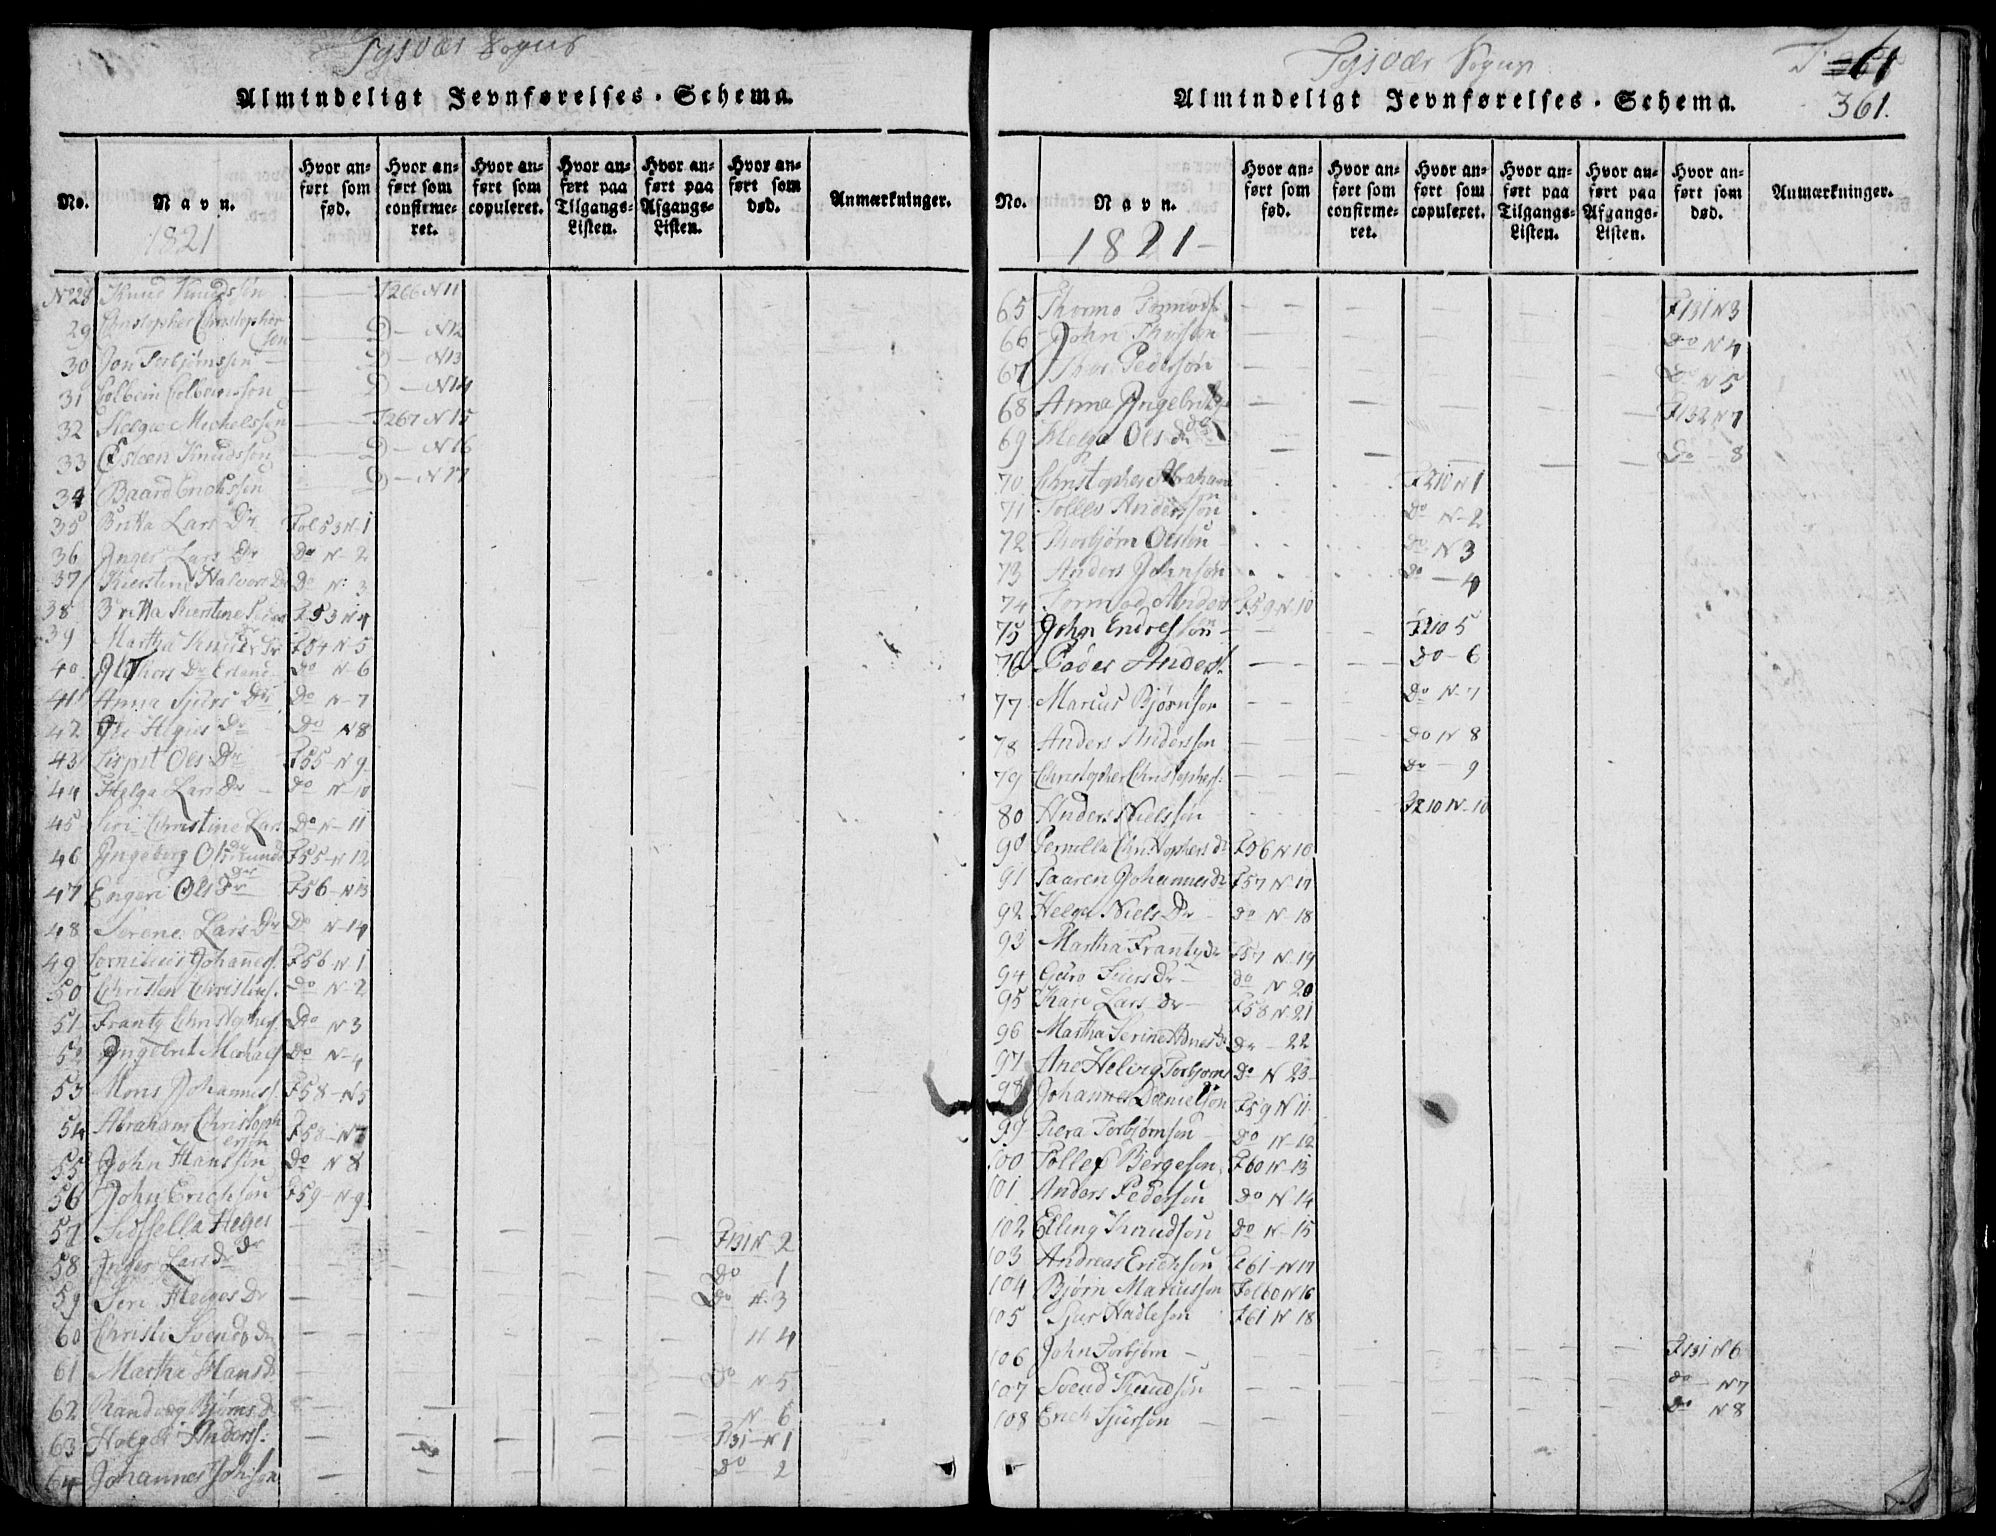 Tysvær Sogns
Almindeligt Jevnførelses-Schema.
No. Navn. Hvor anført som fød. Hvor anført som confirmeret. Hvor anført som copuleret. Hvor anført paa Tilgangs-Listen. Hvor anført paa Afgangs-Listen. Hvor anført som død. Anmærkninger.
1821
No 28 Knud Knudssøn F266 N11
29 Christopher Christophersen D - N12
30 Jon Torbjørnssen D - N13
31 Colbein Colbeinssøn D - N14
32 Helge Michelssøn F267 N15
33 Østeen Knudssøn D - N16
34 Baard Erichssøn D - N17
35 Britta Lars Dr Fol 53 N-1
36 Inger Lars Dr Do N-2
37 Kierstine Halvors Dr Do N: 3
38 Britta Kierstine Peders Dr F53 N4
39 Martha Knuds Dr F54 N-5
40 Thors Dr Do N-6
41 Anna Sjurs Dr Do N-7
42 Dr Do N8
43 Lispit Ols Dr F55 N 9
44 Helga Lars Dr Do N-10
45 Siri Christine Lars Dr Do N-11
46 Ingeborg F55-N12
47 Engeri Ols Dr F56-N13
48 Serene Lars Dr Do N-14
49 Cornelius Johannes. F56 N1
50 Christen Christens. Do N-2
51 Frantz Christophers. Do N3
52 Ingebrit Michaels. Do N-4
53 Mons Johanness. F58-N5
54 Abraham Christophersen F58-N7
55 John Hanssøn Do N8
56 John Erichsøn F59-N9
57 Sissella Helges Dr F131 N-2
58 Inger Lars Dr Do 1
59 Siri Helges Dr Do N-3
60 Christi Svends Dr N4
61 Martha Hans Dr Do N5
62 Randveg Bjørns Dr N-6
63 Holger Anders. F131-N1
64 Johannes Johnsøn Do 2
Tysvær Sogns
61
361.
Almindeligt Jevnførelses-Schema.
No. Navn. Hvor anført som fød. Hvor anført som confirmeret. Hvor anført som copuleret. Hvor anført paa Tilgangs-Listen. Hvor anført paa Afgangs-Listen. Hvor anført som død. Anmærkninger.
1821-
65 Thormo Tormods. F131 N3
66 John Thorsøn Do N4
67 Thor Pedersøn Do N5
68 Anna Ingebrits Dr F132 N7
69 Helga Ols Dr Do - 8
70 Christopher Abrahamsøn F210 N1
71 Tollev Anderssøn Do N-2
72 Thorbjørn Olssøn Do N3
73 Anders Johnsøn Do - 4
74 Tormod Anders F59 N.10
75 John Endressøn - F210 5
76 Peder Anders. Do - 6
77 Marcus Bjørnsøn Do N-7
78 Anders Anderssøn Do N 8
79 Christopher Christophers. Do - 9
80 Anders Nielssøn F210 N-10
90 Pernilla Christophers Dr F56 N 16
91 Saaren Johannes Dr F57 N-17
92 Helga Niels Dr Do N-18
93 Martha Frantz Dr F57 N-19
94 Guro Siurs Dr Do N-20
95 Kari Lars Dr F58 N-21
96 Martha Serine Adnes Dr Do - 22
97 Ane Helvig Torbjørns Do N 23
98 Johannes Danielsøn F59 N11
99 Torbjørnsøn Do N-12
100 Tollef Bergesøn F60 N-13
101 Anders Pedersøn Do N14
102 Elling Knudsøn Do N-15
103 Andreas Erichsøn F61-N17
104 Bjørn Marcussøn Fol 60 N16
105 Sjur Hadlesøn F61 N 18
106 John Torbjørn - F131 N6
107 Svend Knudsøn Do N7
108 Erich Sjursøn Do N8